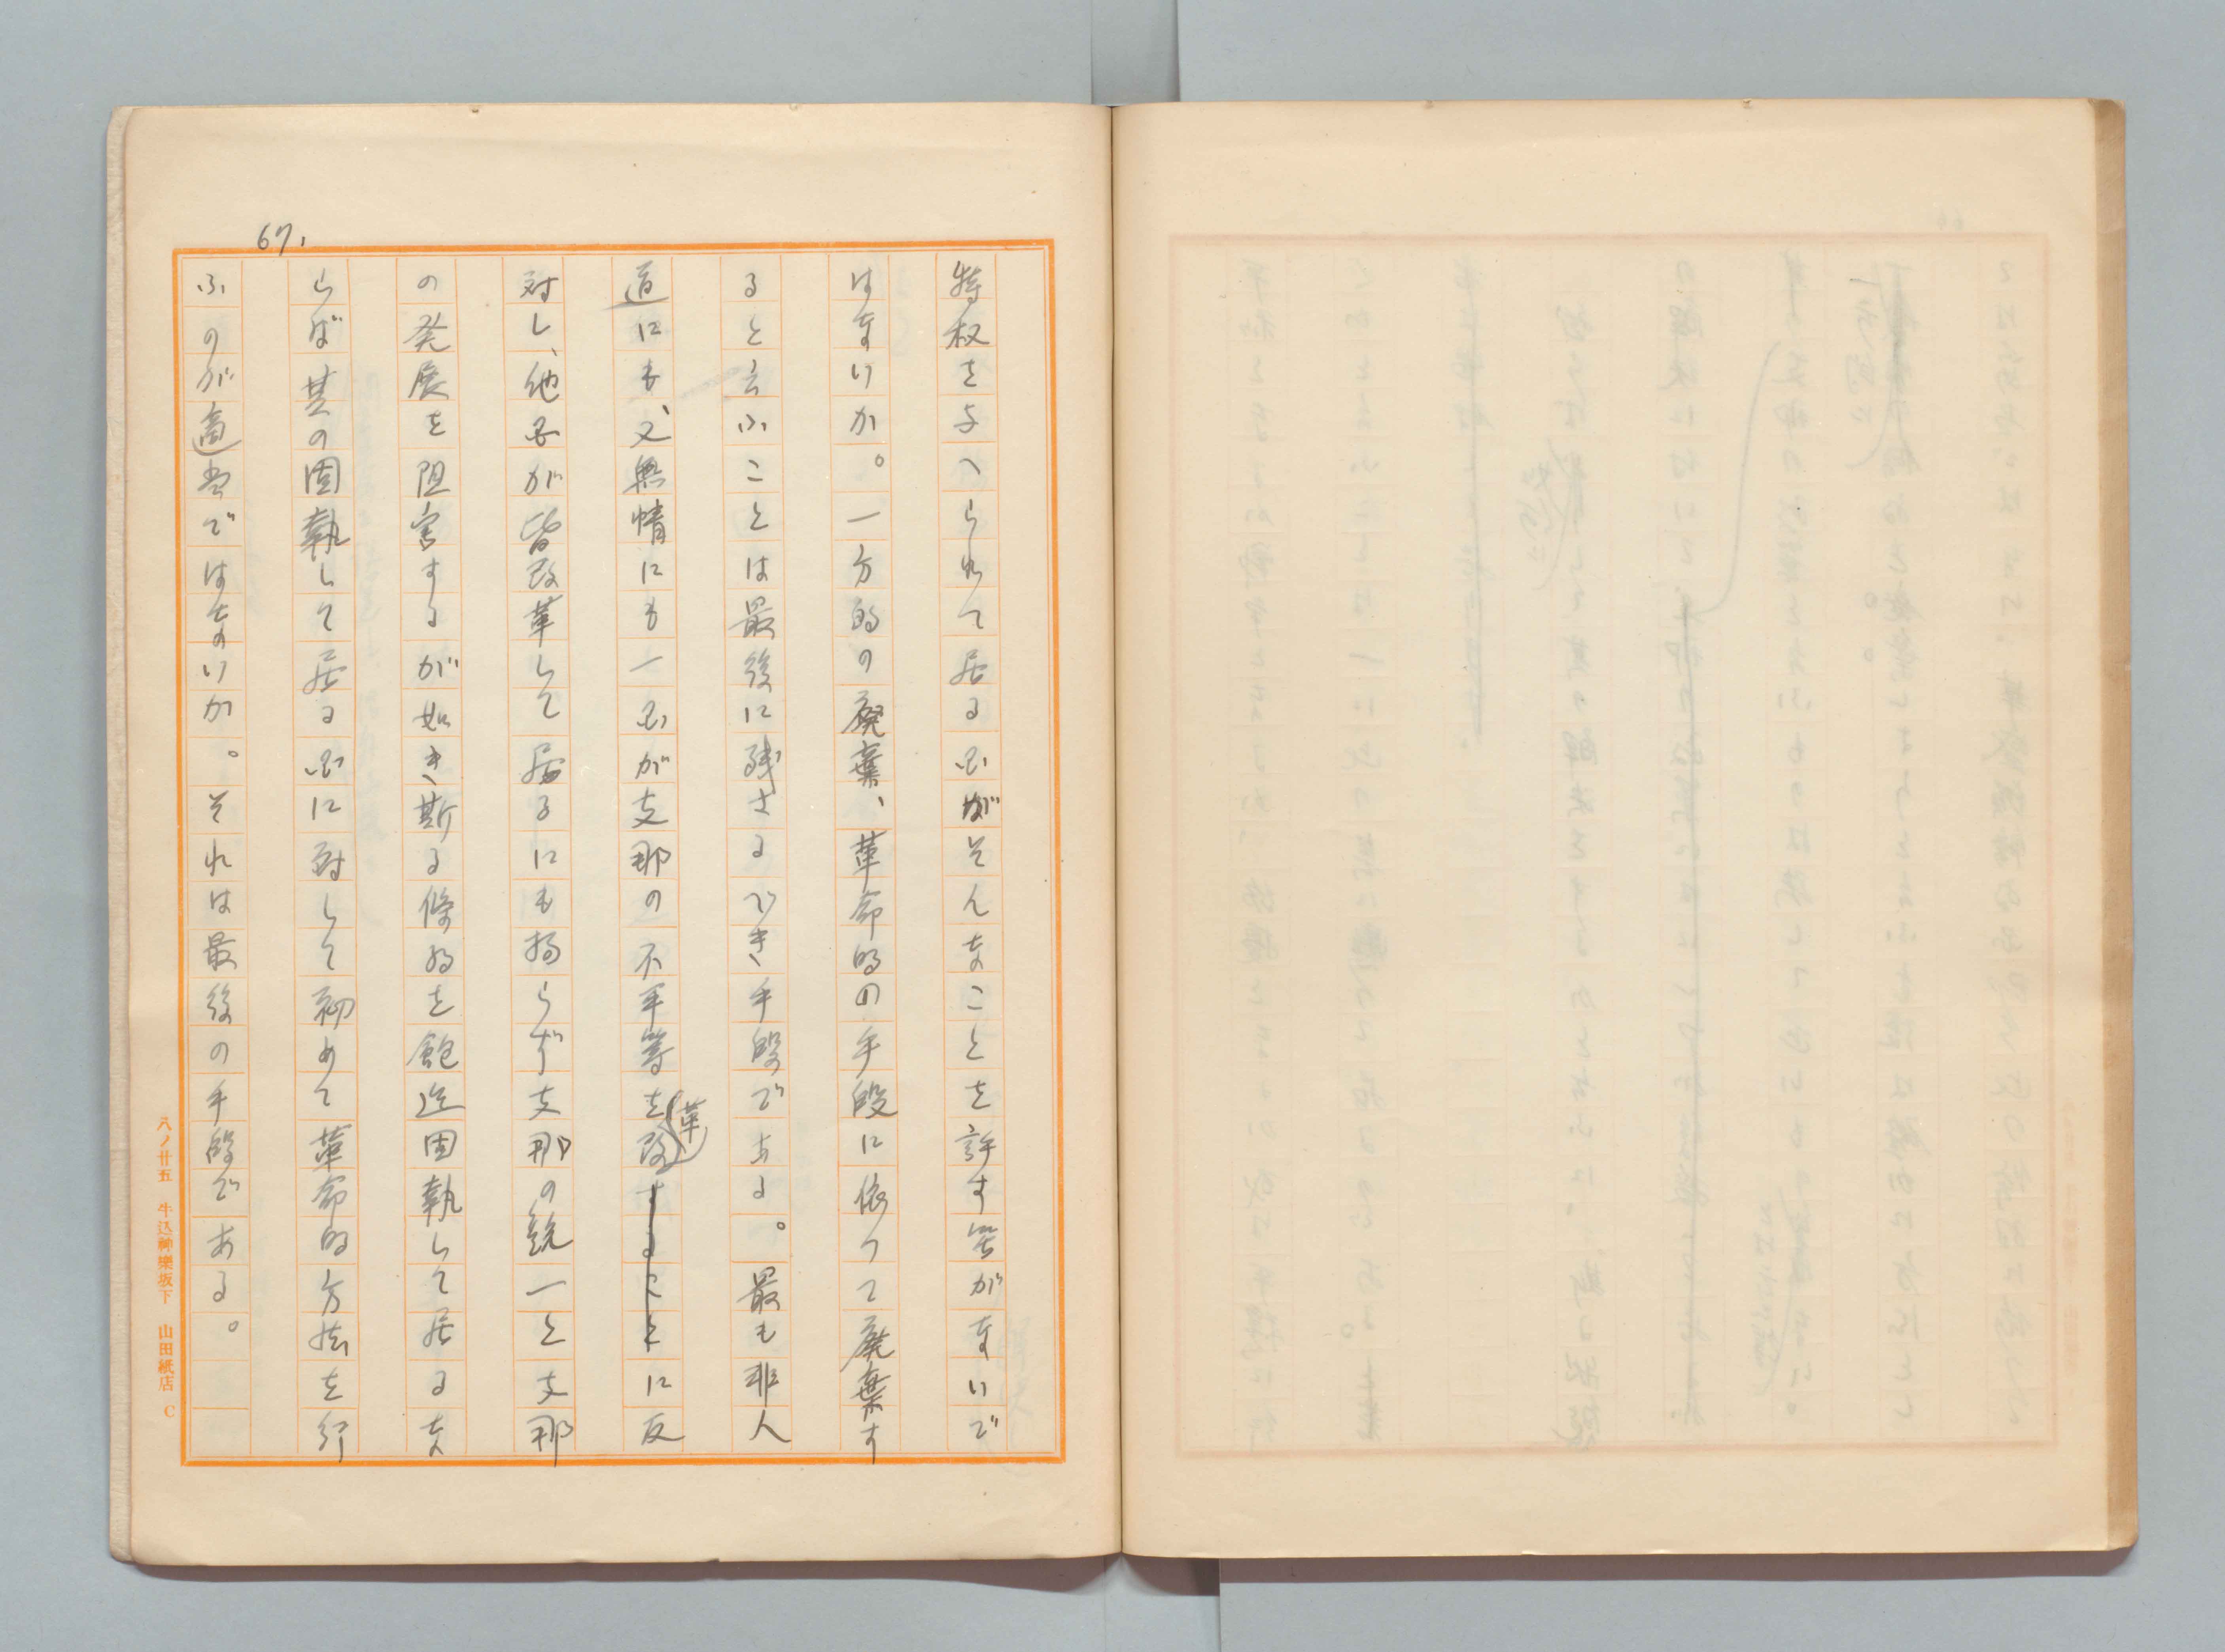 67.
特权を与へられて居る国がそんなことを許す筈がないで
はないか。一方的の廃棄、革命的の手段に依つて廃棄す
ると云ふことは最後に残さるべき手段である。最も非人
道にも、又無情にも一国が支那の不平等を改革に反
対し、他国が皆改革して居るにも拘らず支那の統一と支那
の発展を阻害するが如き斯る條約を飽迄固執して居るな
らば其の固執して居る国に対して初めて革命的方法を行
ふのが適当ではないか。それは最後の手段である。
八ノ廿五 牛込神樂坂下 山田紙店 C